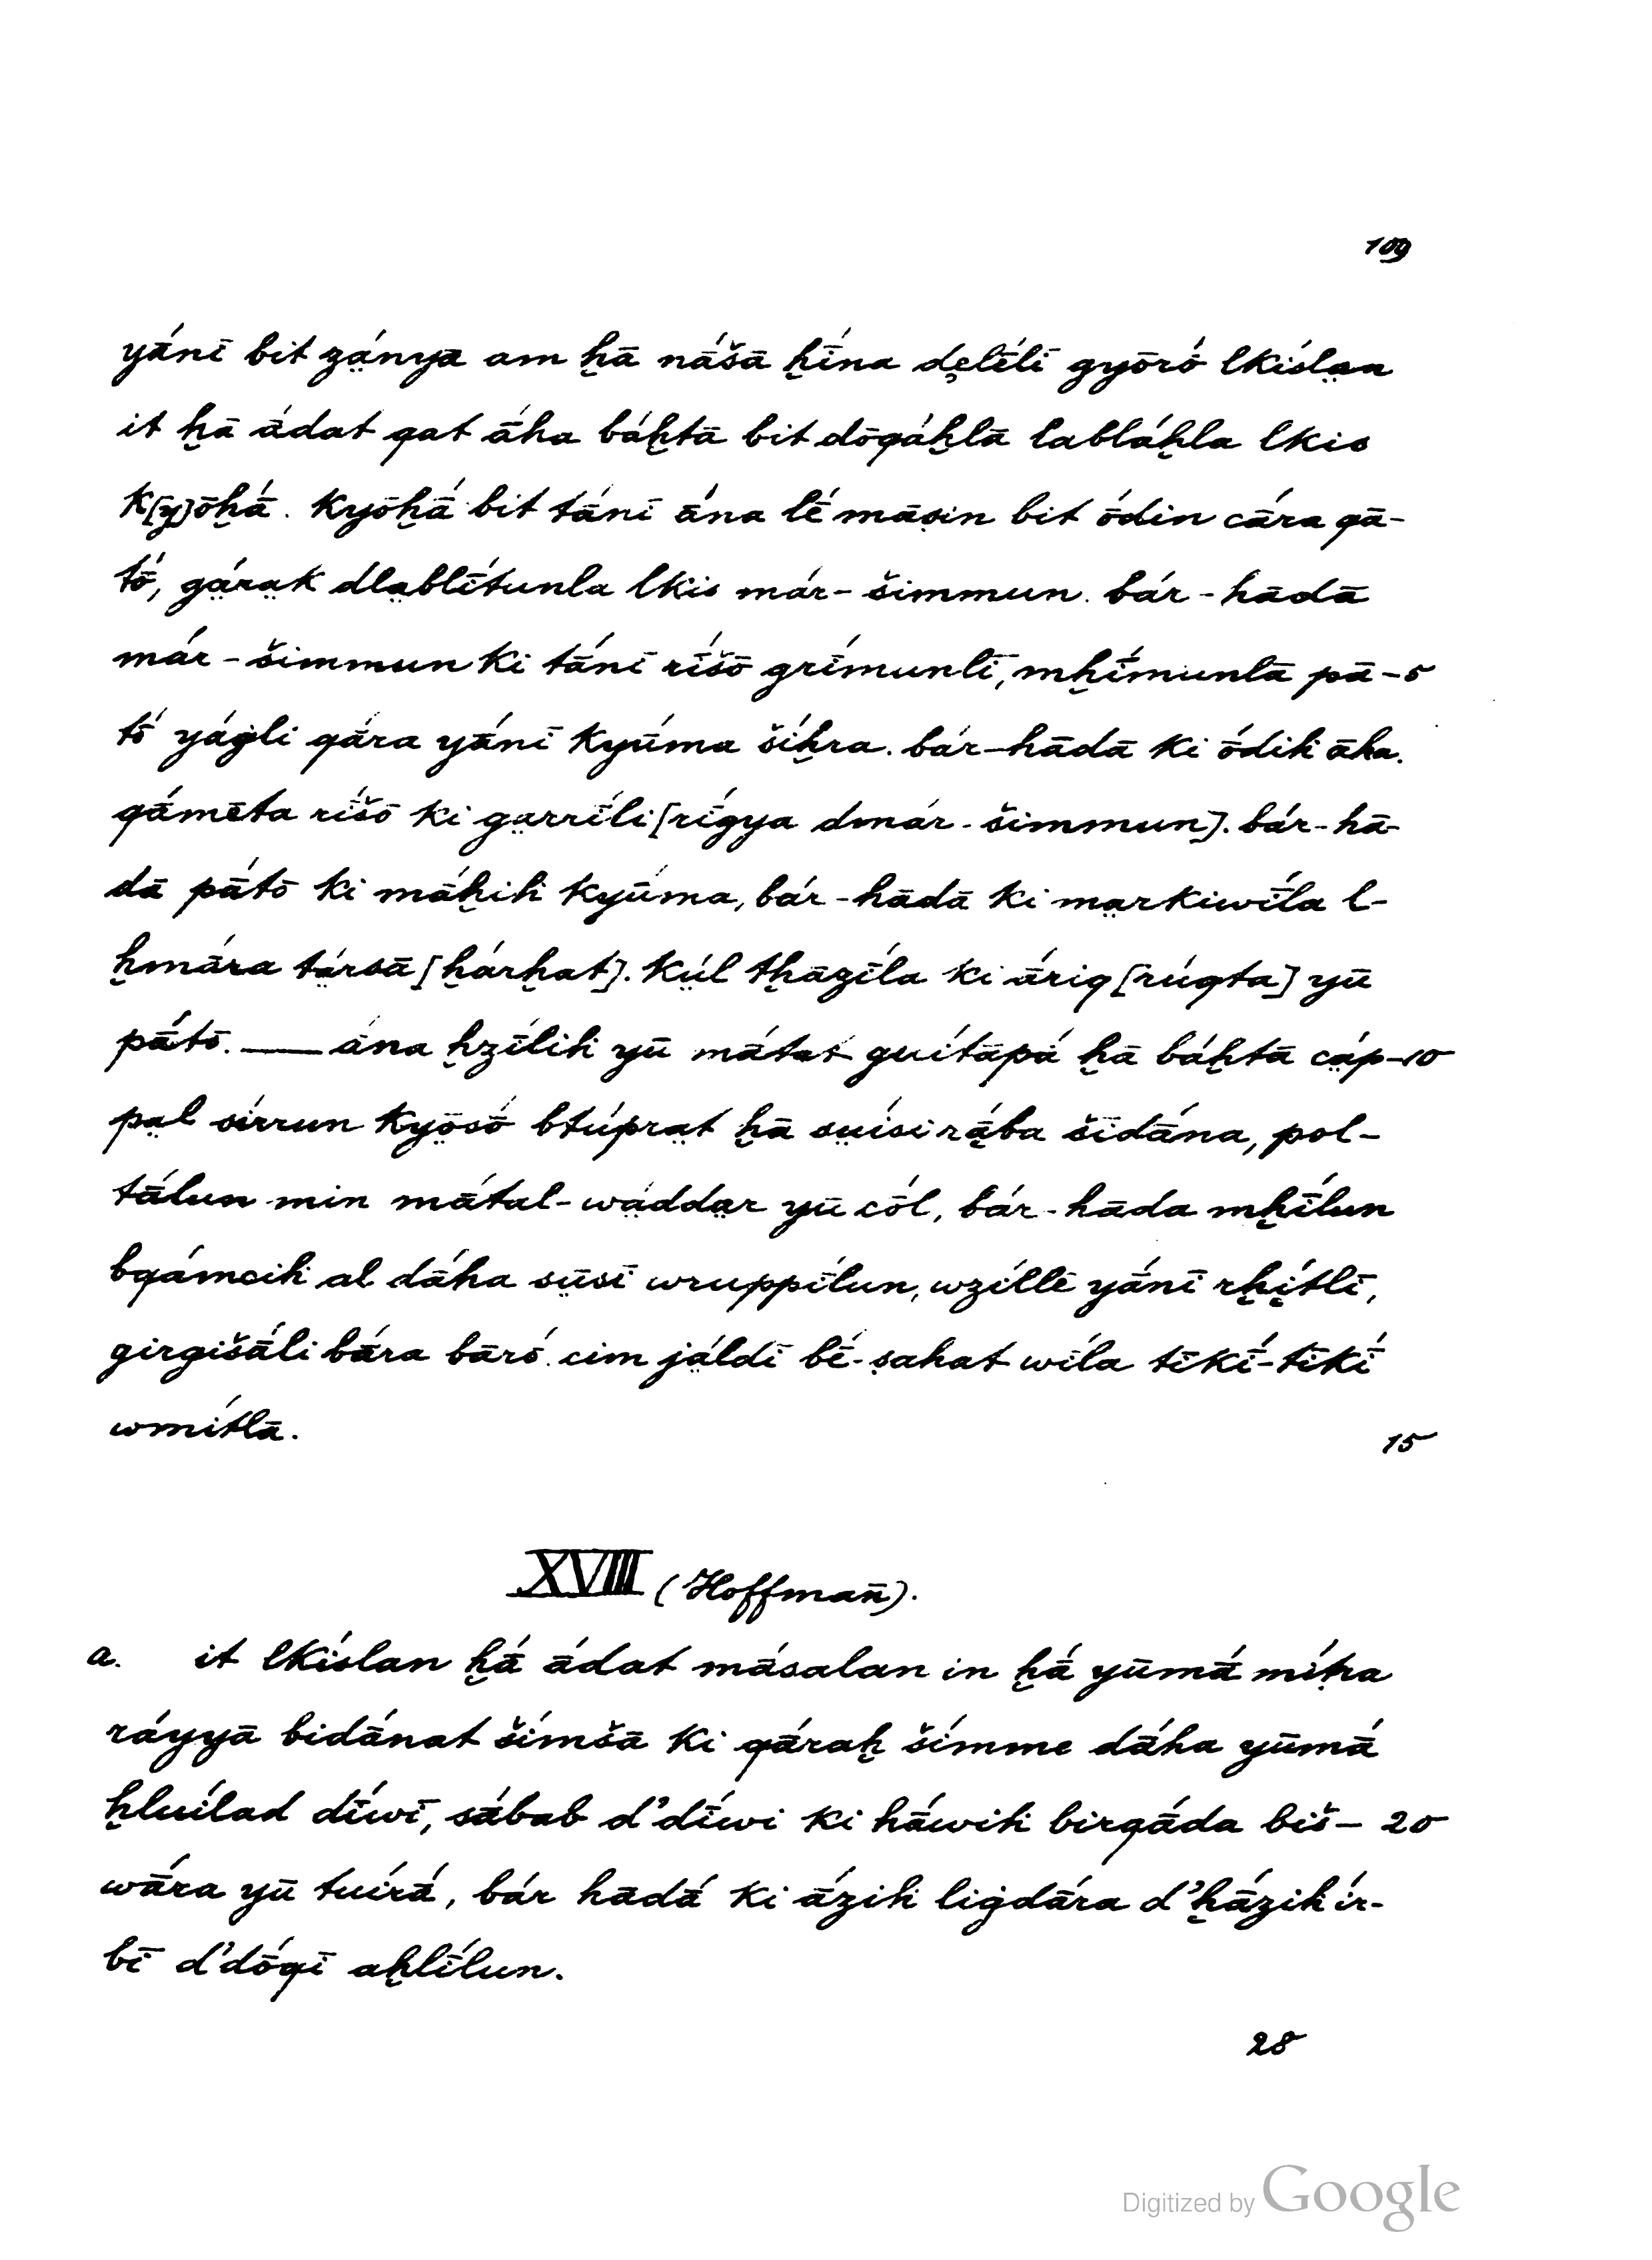 109
yā́nī bit zä́nyä am ḫā nā́šā ḫī́na dęlī́lī gyōrṓ lkíslạn
it ḫā ā́dat qat ā́ha báḫtā bit dōqáḫlā labláḫla lkis
k[y]ōḫā́. kyōḫā́ bit tā́nī ā́na lḗ māṣin bit ṓdin cāra qā-
tṓ, gä́räk dläblī́tunla lkis már-šimmun. bár-hādā
már-šimmun ki tā́nī rī́šō grīmunlī, mḫī́munlā pā- 5
tṓ yáġli qā́ra yā́nī kyū́ma šíḫra. bár-hādā ki ṓdih āha.
qā́mēta rī́šō ki gärrī́li [rī́gya dmár-šimmun]. bár-hā-
dā pā́tō ki mā́ḫih kyū́ma, bár-hādā ki märkiwī́la l-
ḫmā́ra tä́rsā [ḫárḫat]. kül tḫāzī́la ki ā́riq [rúqta] yū
pā́tō. — ā́na ḫzī́lih yū mā́tat guitāpá ḫā báḫtā cä́p- 10
päl sírrun kyōsṓ btúprät ḫā süísi rā́ba šīdā́na, pol-
tā́lun min mā́tal-wäddär yū cōl, bár-hāda mḫī́lun
bqámcih al dā́ha sǖsī wruppī́lun, wzíllē yā́nī rḫíṭlī,
girgišā́li bā́ra bārṓ. cim jäldī bḗ-ṣahat wī́la tīkī́-tīkī́
wmítlā. 15
XVIII (Hoffmañ).
a. it lkíslan ḫā́ ā́dat mā́salan in ḫā́ yūmā́ míṭra
ráyyā bidā́nat šímšā ki qā́raḫ šímme dā́ha yūmā́
ḫluílad dī́wī, sábab d'dī́wi ki hā́wih birqā́da biš- 20
wā́ra yū tuírā́, bár hādā́ ki ā́zih liġdā́ra d'ḫā́zih ír-
bī d'dṓqī aḫlī́lun.
28
Digitized by Google